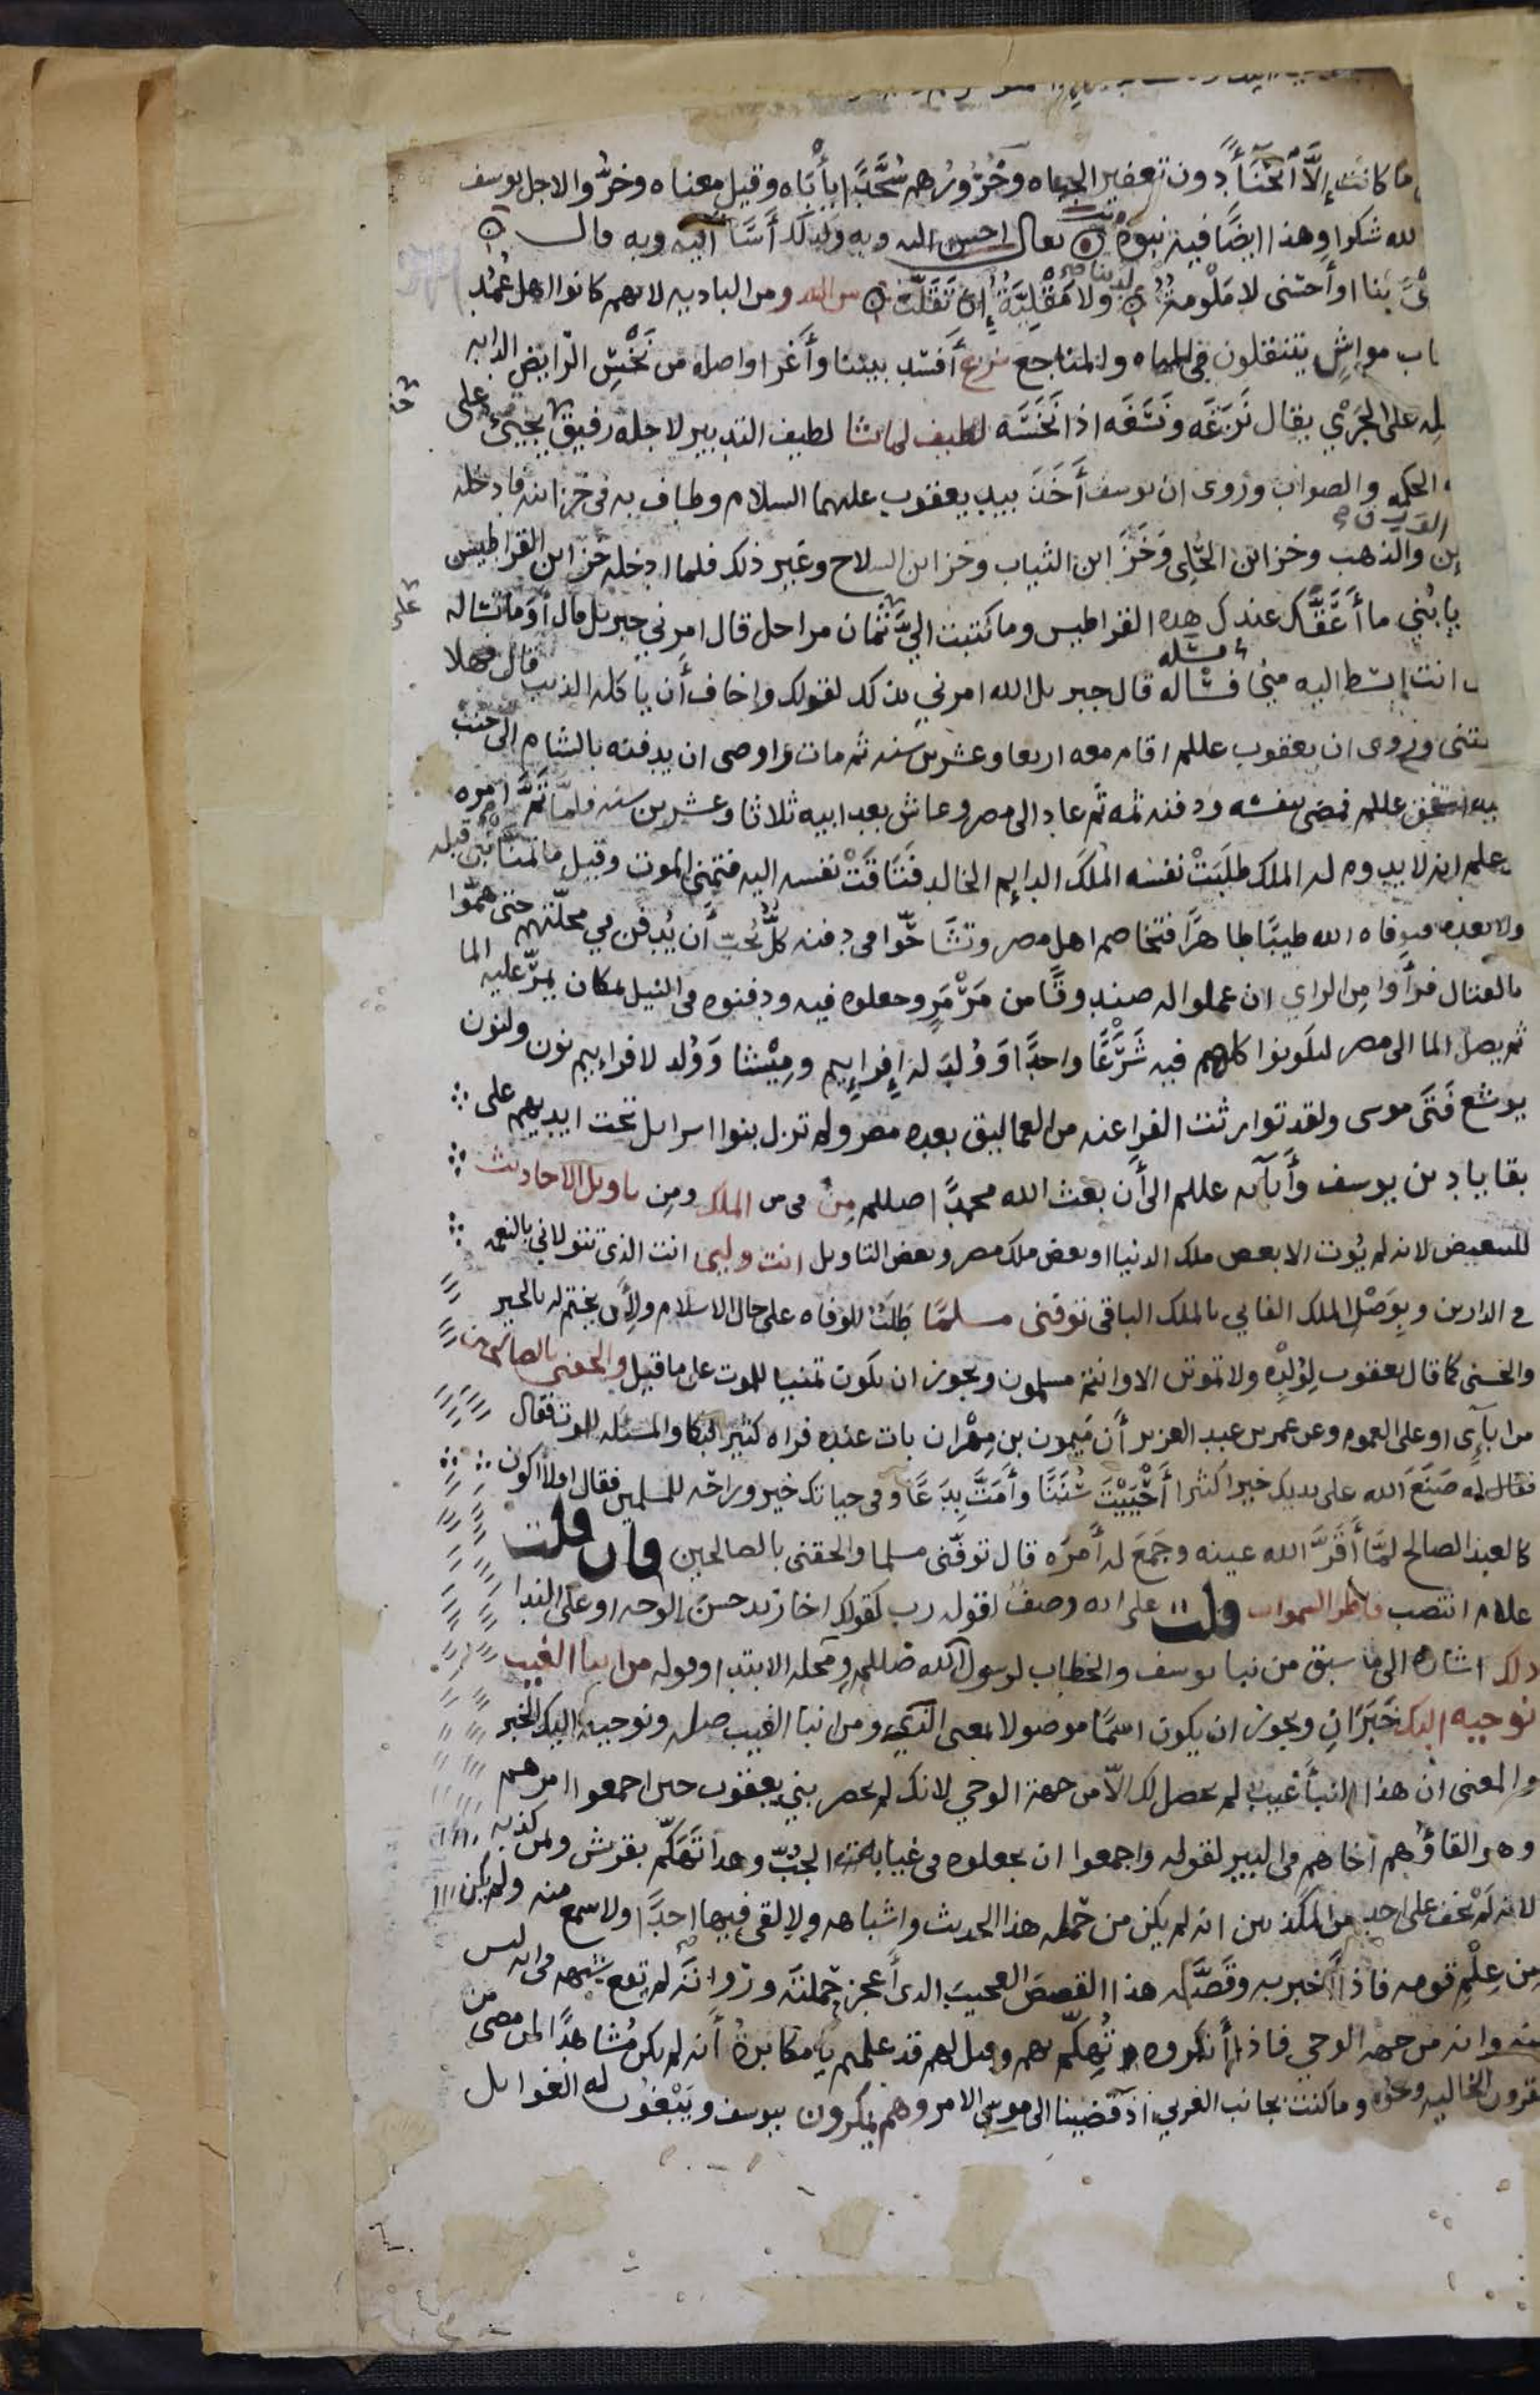 ما كانت إلّا انحناءً دون تعفير الجباه وخُرُورُهم سُجَّدًا يأباه وقيل معناه وخرُّوا لاجل يوسف
لله شكرا وهذا ايضًا فيه نبوه يقال احسن اليه وبه وكذلك أسَا اليه وبه قال
ئى بنا او أحسنى لا مَلُومةٌ لدينا ولا مَقْلِيّةٌ إن تَقَلّت من البدو من الباديه لانهم كانوا اهل عُمُد
اب مواشٍ يتنقلون فى المياه والمناجع نزغ أفسد بيننا وأغرا واصله من نَخْسِ الرّايض الدابه
له على الجَرْيِ يقال نَزَغَه ونَسَغَه اذا نَخَسَه لطيف لما يشا لطيف التدبير لاجله رفيق حتى يجيئ على
الحكمه والصواب وروى ان يوسف أخَذَ بيد يعقوب عليهما السلام وطاف به فى خزاينه فادخله
الورق
ين والذهب وخزاين الحُلِى وخَزَاين الثياب وخزاين السلاح وغير ذلك فلما ادخله خزاين القراطيس
يا بُنَي ما أعَقَّك عندك هذه القراطيس وما كتبت اليَّ على ثمان مراحل قال امرني جبريل قال أوَما تساله
انت ابسَط اليه منّي فسأله قال جبريل الله امرني بذلك لقولك واخاف أن ياكله الذيب قال فهلا
تنى وروى ان يعقوب عللم اقام معه اربعا وعشرين سنه ثم مات واوصى ان يدفنه بالشام الى جنب
بيه اسحق عللم فمضى بنفسه ودفنه ثمه ثم عاد الى مصر وعاش بعد ابيه ثلاثا وعشرين سنه فلمّا تَمَّ امره
علم انه لا يدوم له الملك طلبَتْ نفسُه المُلكَ الدايم الخالد فتَاقَتْ نفسه اليه فتمنى الموت وقيل ما تمناه نبى قبله
ولا بعده فتوفاه الله طيبًا طاهرًا فتخاصم اهل مصر وتشَاحّوا فى دفنه كلٌّ يُحبّ أن يُدفن في محلّتهم حتى همّوا
بالقتال فرأوا مِن الراي ان عملوا له صندوقًا من مَرْمَرٍ وجعلوه فيه ودفنوه فى النيل بمكان يمرّ عليه الما
ثم يصل الما الى مصر ليكونوا كلهم فيه شَرَعًا واحدًا ووُلِدَ له إفراييم ومِيْشا ووُلد لافراييم نون ولنون
يوشع فَتَى موسى ولقد توارثت الفراعنه من العماليق بعده مصر ولم تزل بنوا اسرايل تحت ايديهم على
بقايا دين يوسف وأبآيه عللم الى أن بعث الله محمدًا صللم مِن فى من الملك ومِن تاويل الاحاديث
للتبعيض لانه لم يُوت الا بعض ملك الدنيا او بعض ملك مصر وبعض التاويل انت وليى انت الذى تتولانى بالنعمه
فى الدارين وبِوَصْل الملك الفانى بالملك الباقى توفنى مسلمًا طَلَبٌ للوفاه على حال الاسلام ولأن يختم له بالخير
والحسنى كما قال يعقوب لِوُلْدِه ولا تموتن الا وانتم مسلمون ويجوز ان يكون تمنيا للموت على ما قيل والحقنى بالصالحين
من ابآءِى او على العموم وعن عمر بن عبد العزيز أن ميمون بن مِهْران بات عنده فراه كثير البكا والمسئله للموت فقال
فقال له صَنَعَ الله على يديك خيرا كثيرا أحْيَيْتَ سُنَنًا وأمَتَّ بِدَعًا وفى حياتك خير وراحه للمسلمين فقال اولا اكون
كالعبد الصالح لمّا أقَرَّ الله عينه وجَمَعَ له أمرَه قال توفّنى مسلما والحقنى بالصالحين فان قلت
علام انتصب فاطر السموات قلت على انه وصفٌ لقوله رب كقولك اخا زيد حسن الوجه او على الندا
ذلك اشاره الى ما سبق من نبا يوسف والخطاب لرسول الله صللم ومحله الابتدا وقوله من انبا الغيب
نوحيه اليك خَبَرَانِ ويجوز ان يكون اسمًا موصولا بمعنى الذي ومن انبا الغيب صله ونوحيه اليك الخبر
والمعنى ان هذا النبأ غيب لم يحصل لك الّا من جهة الوحي لانك لم تحضر بني يعقوب حين اجمعوا امرهم
وهو القاؤهم اخاهم فى البير لقوله واجمعوا ان يجعلوه فى غيابة الجُبّ وهذا تَهَكّم بقريش وبمن كذبه
لانه لَمْ يَخْفَ على احد من المكذبين انه لم يكن من حَمَله هذا الحديث واشباهه ولا لقى فيها احدًا ولا سمع منه ولم يكن
مِن عِلْمِ قومه فاذا أخبر به وقَصَّ هذا القصصَ العجيبَ الذى أعجز حَملتَه ورُواتَه لم تقع شبهه فى انه ليس
منه وانه من جهة الوحي فاذا أنكروه تُهكّم بهم وقيل لهم قد علمتم يا مكابرةُ أنه لم يكن مُشاهدًا لمن مضى من
القرون الخاليه ونحوه وما كنت بجانب الغربي اذ قضينا الى موسى الامر وهم يمكرون بيوسف ويَبْغُونَ له الغوايل